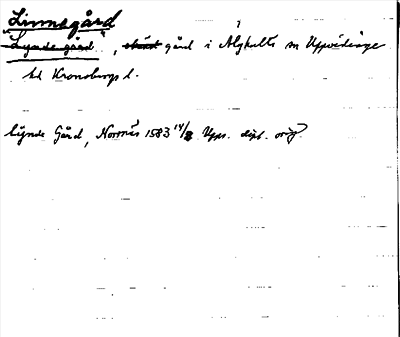 Linnegård
"Lynde gård", gård i Algutsb sn Uppvidinge
hd Kronobergs l.
Lÿnde Gård, Norrnäs 1583 14/8 Upps. dipl. orig.